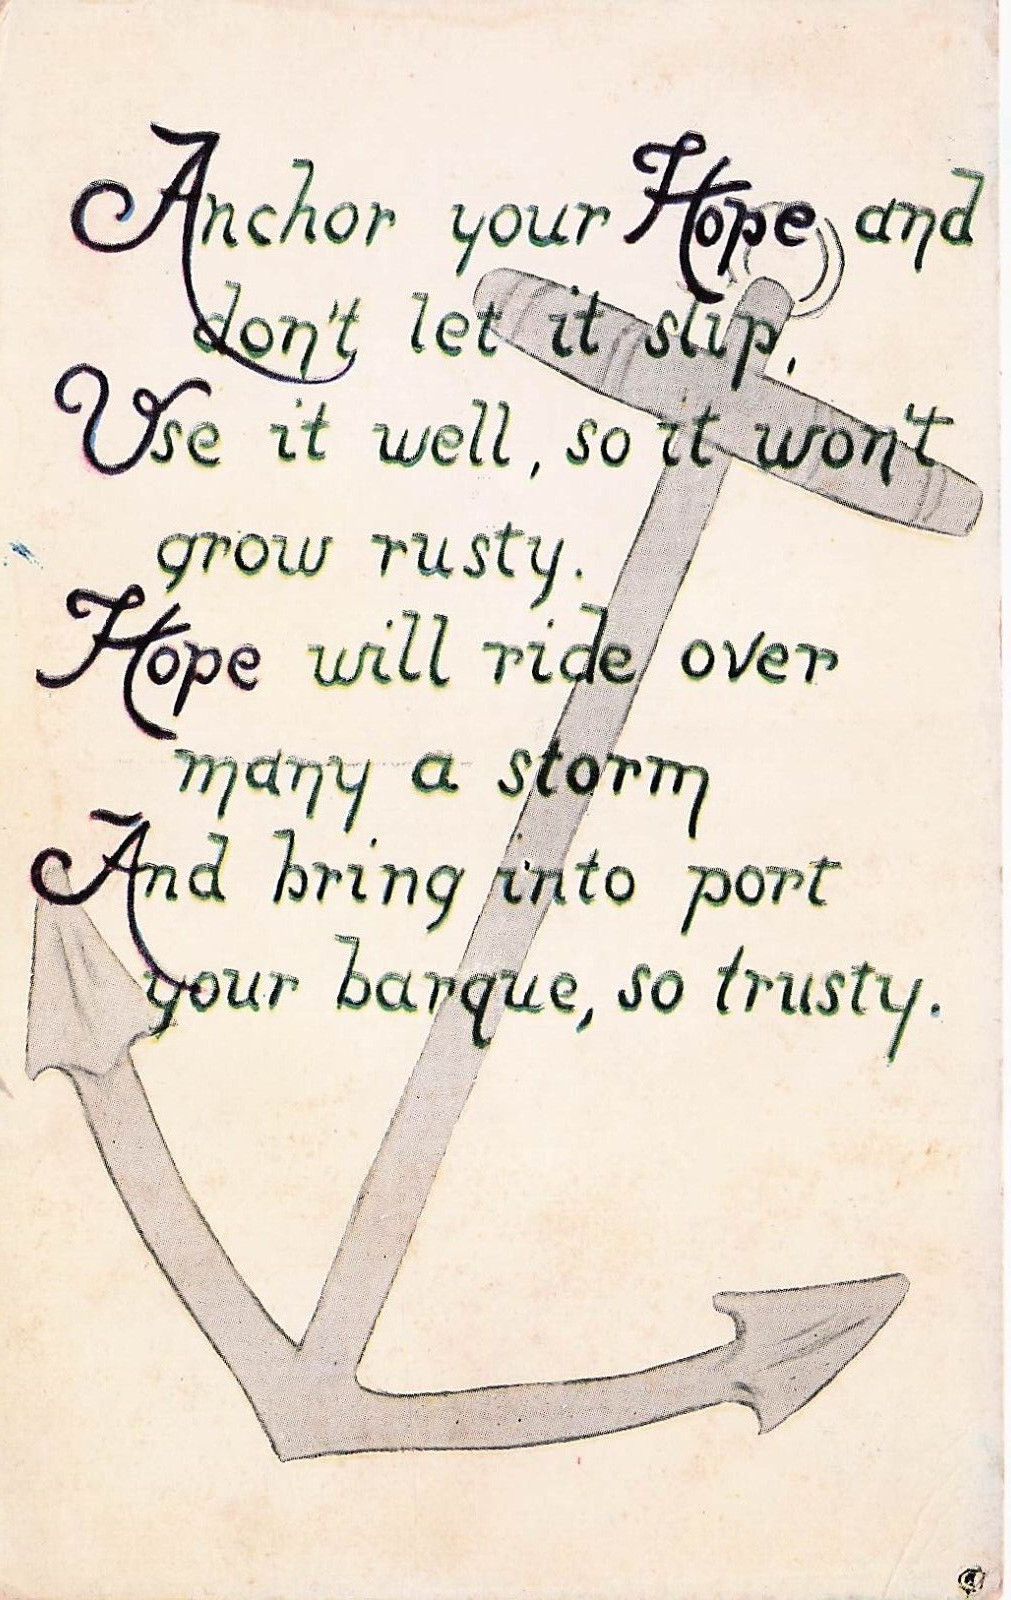 Anchor your Hope and
don't let it slip,
Use it well, so it won't
grow rusty.
Hope will ride over
many a storm
And bring into port
your barque, so trusty.